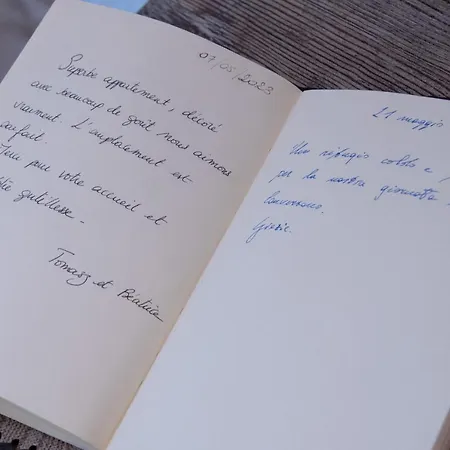 07/05/2023
Superbe appartement, décoré
avec beaucoup de goût nous aimons
vraiment. L'emplacement est
parfait.
pour votre accueil et
gentillesse.
Tomasz et Béatrice
21 maggio
Un rifugio caldo e
per la nostra giornata
Grazie.